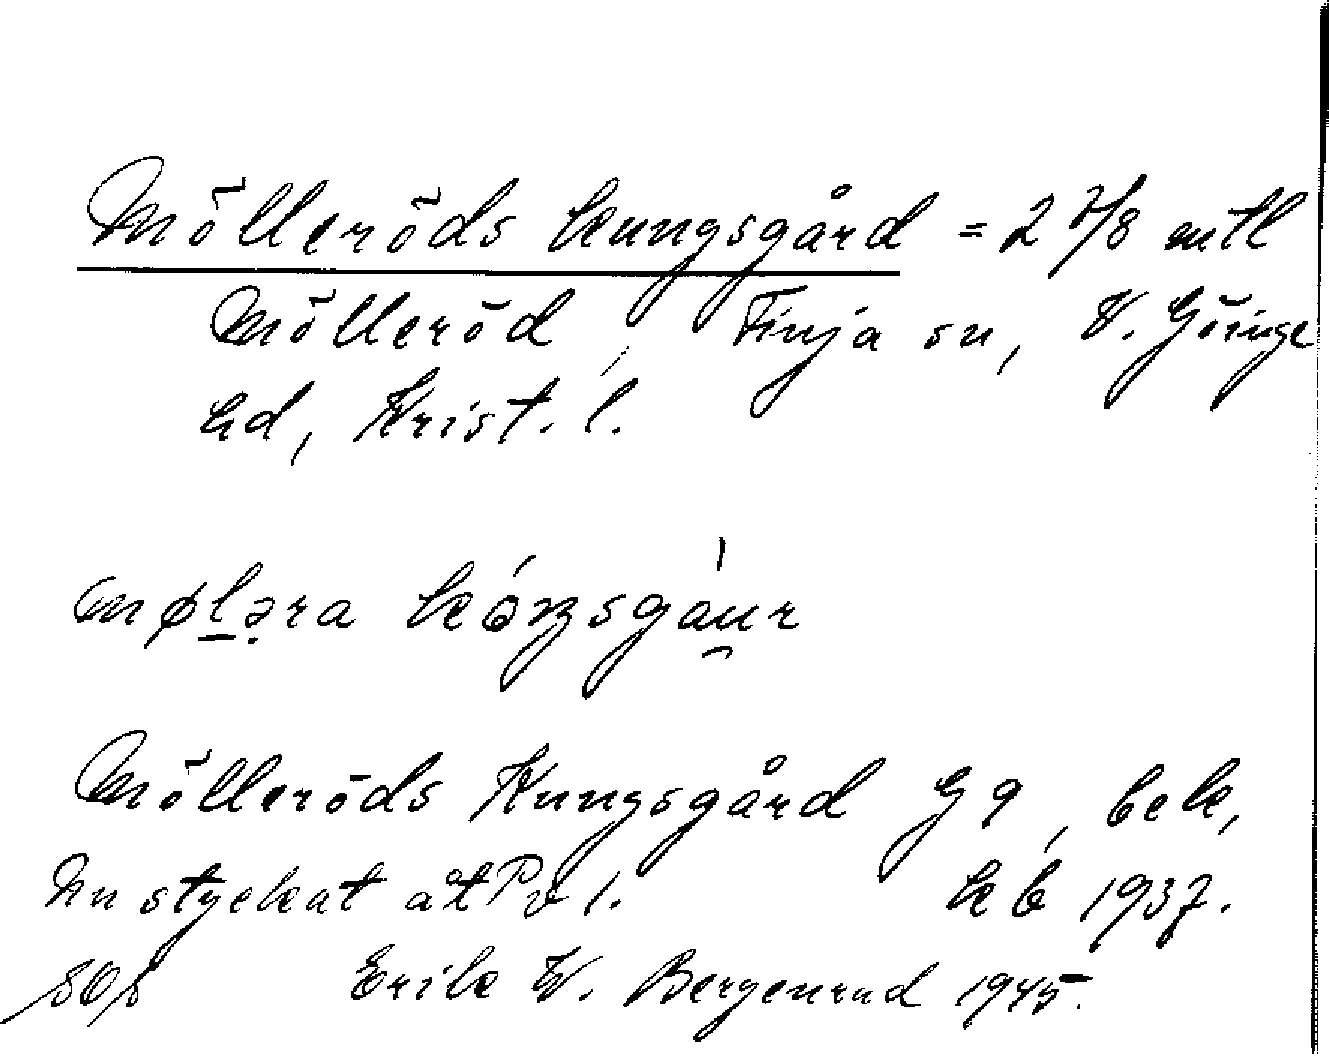 Mölleröds kungsgård = 2 7/8 mtl
Mölleröd, Finja sn, V. Göinge
hd, Krist. l.
møləra kóŋsgàu̯r
Mölleröds Kungsgård Gg, bek,
Nu styckat åt kb 1937.
Erik W. Bergenrud 1945.